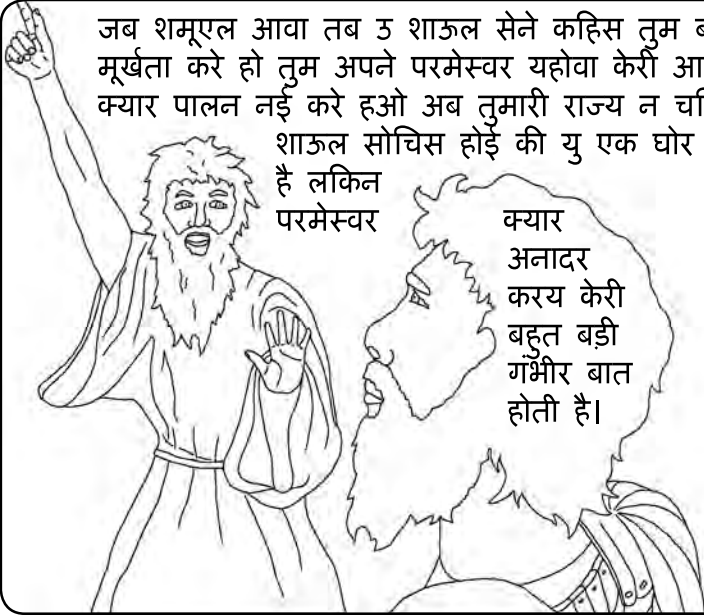 जब शमूएल आवा तब उ शाऊल सेने कहिस तुम
मूर्खता करे हो तुम अपने परमेस्वर यहोवा केरी
क्यार पालन नई करे हओ अब तुमारी राज्य न
शाऊल सोचिस होई की यु एक घोर
है लकिन
परमेस्वर क्यार
अनादर
करय केरी
बहुत बड़ी
गंभीर बात
होती है।